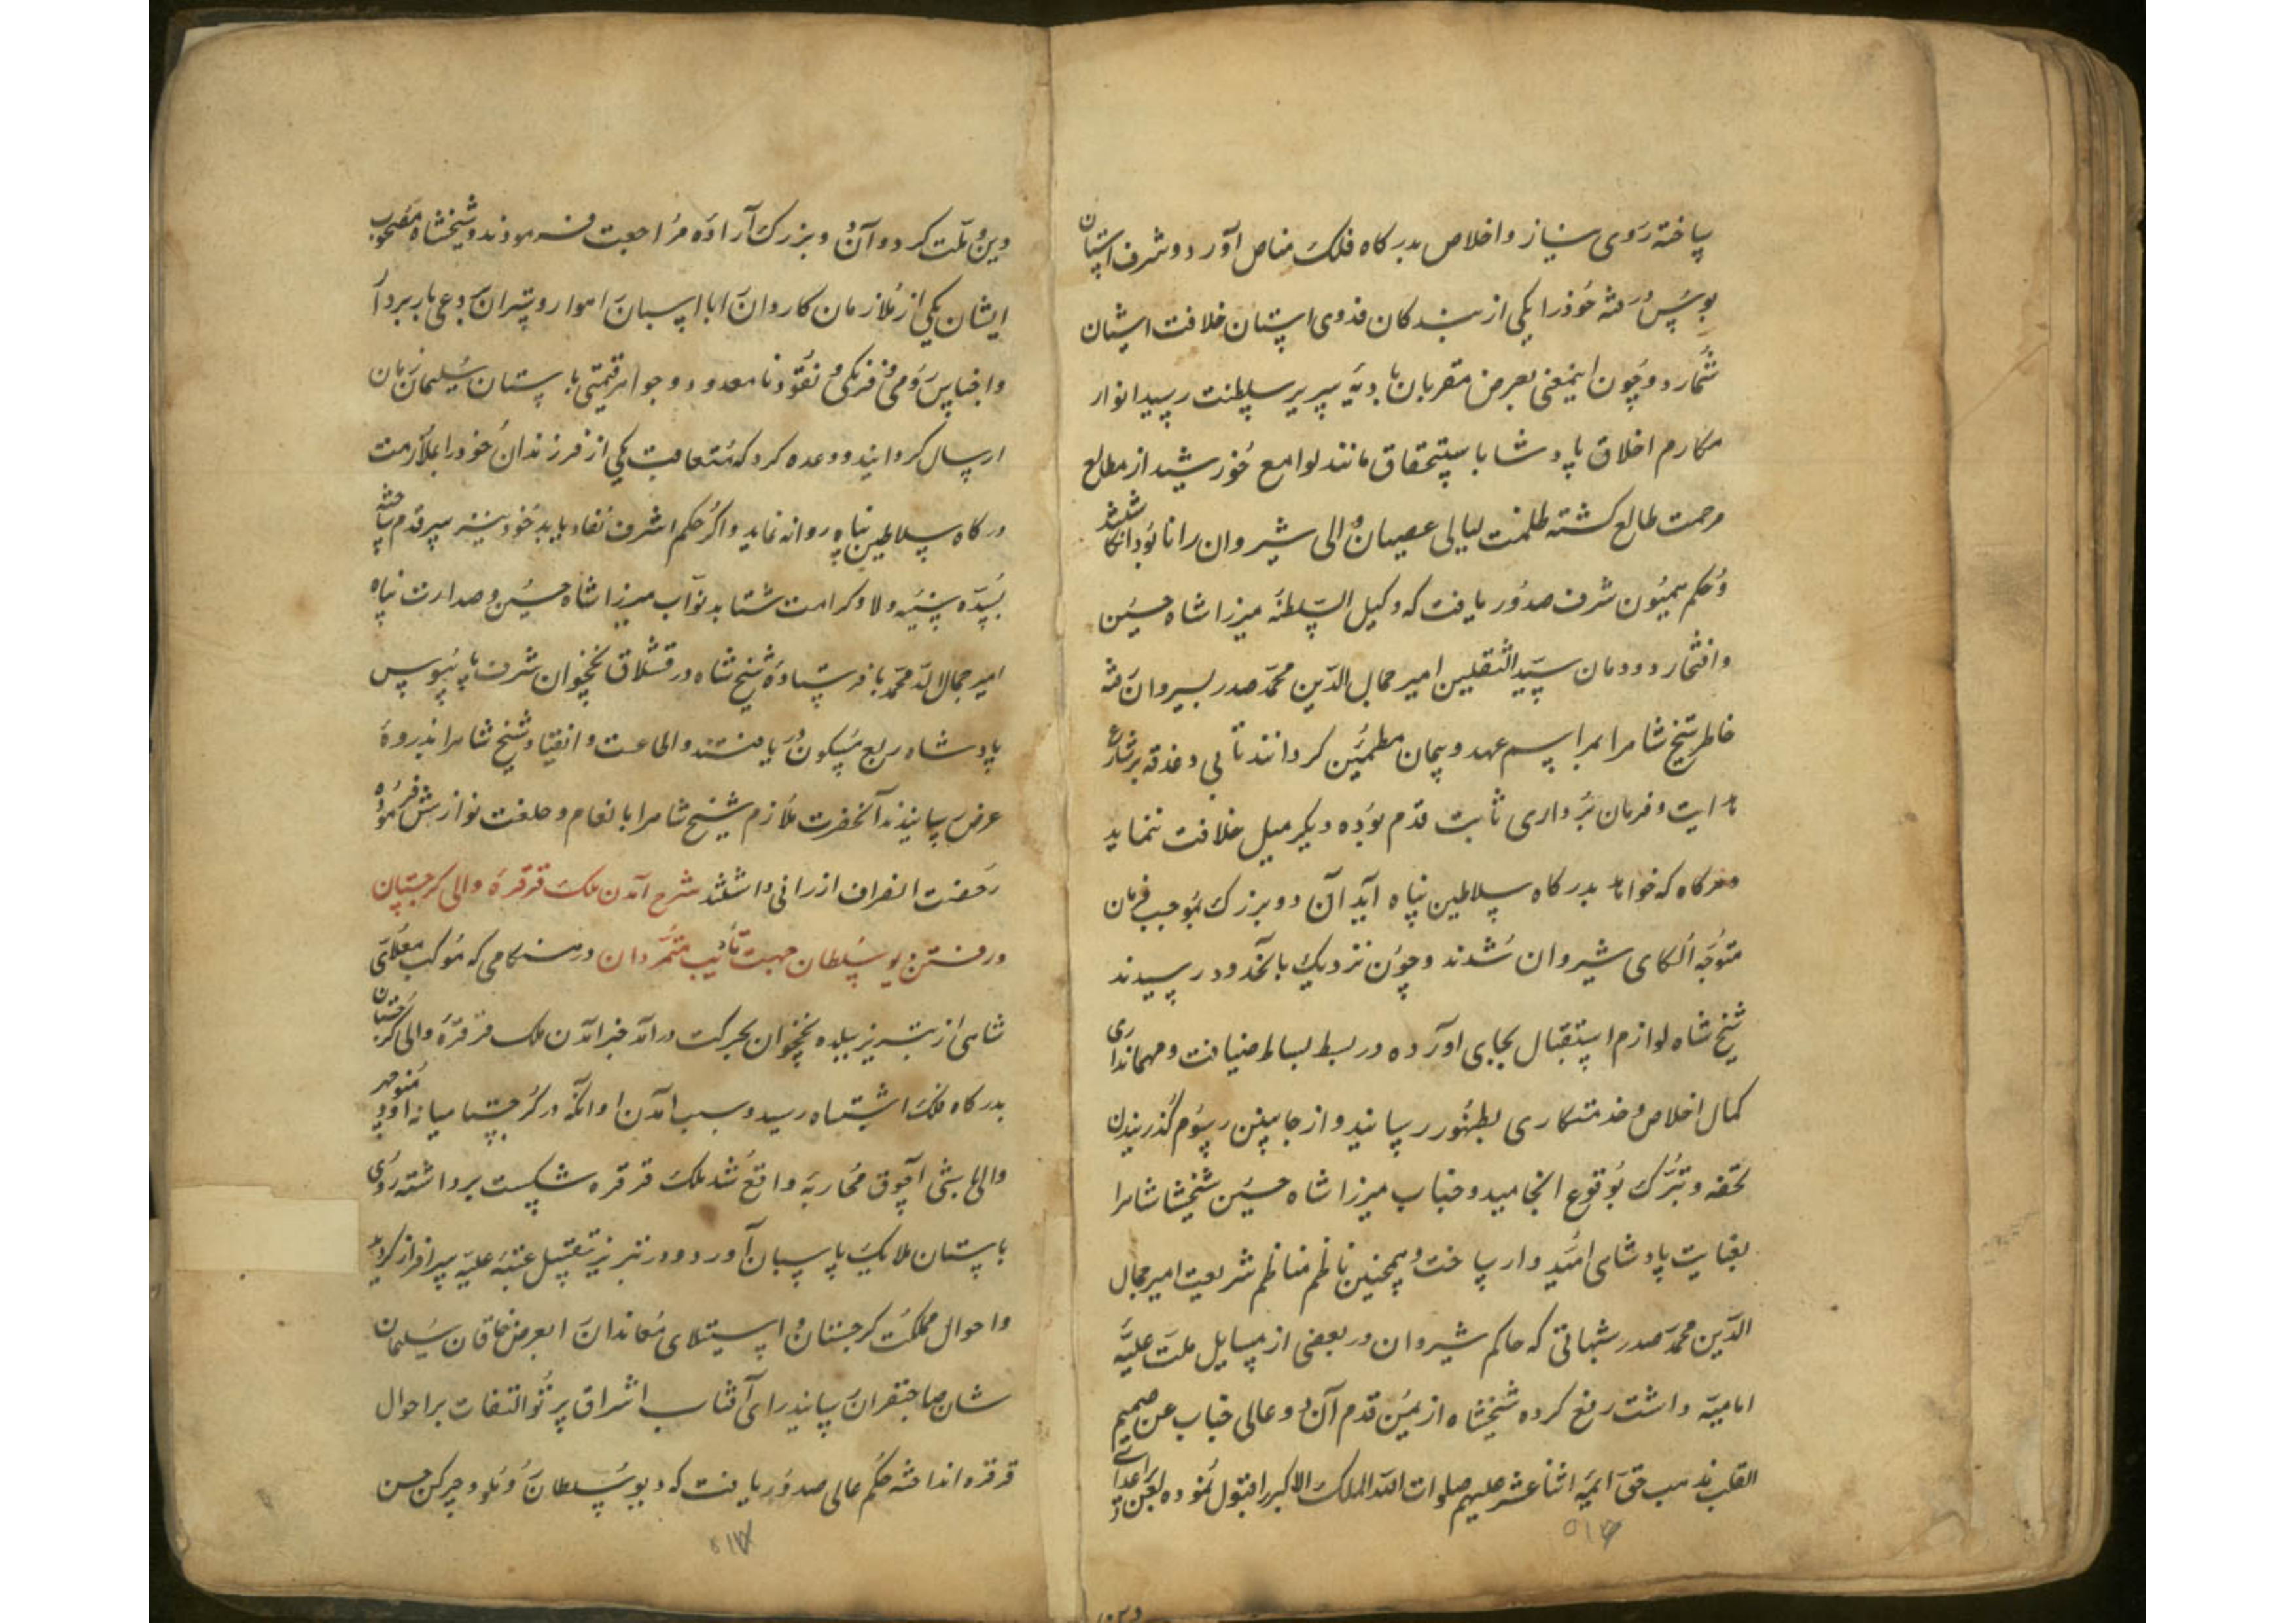 ساخته روی نیاز و اخلاص بدرکاه فلک مناص آورد و شرف استان
بوس در یافته خود را یکی از بندکان فدوی استان خلافت اشیان
شمارد و چون اینمعنی بعرض مقربان پایه سریر سلطنت رسید انوار
مکارم اخلاق پادشاه با استحقاق مانند لوامع خورشید از مطالع
مرحمت طالع کشته ظلمت لیالی عصیان والی شیروان را نابود انکاشتند
و حکم همیون شرف صدور یافت که وکیل السلطنه میرزا شاه حسین
و افتخار دودمان سید الثقلین امیر جمال الدین محمد صدر بشیروان رفته
خاطر شیخ شاه را بمراسم عهد و پیمان مطمئن کردانند تا بی دغدغه بر شارع
هدایت و فرمان برداری ثابت قدم بوده دیکر میل خلافت ننماید
هرکاه که خواهد بدرکاه سلاطین پناه آید آن دو بزرک بموجب فرمان
متوجه الکای شیروان شدند و چون نزدیک بآنحدود رسیدند
شیخ شاه لوازم استقبال بجای اورده در بسط بساط ضیافت و مهمانداری
کمال اخلاص و خدمتکاری بظهور رسانید و از جانبین رسوم کذرانیدن
تحفه و تبرک بوقوع انجامید و جناب میرزا شاه حسین شیخشاه را
بعنایت پادشاهی امیدوار ساخت و همچنین ناظم مناظم شریعت امیر جمال
الدین محمد صدر شبهاتی که حاکم شیروان در بعضی از مسایل ملت علیه
امامیه داشت رفع کرده شیخشاه از یمن قدم آن دو عالی جناب عن صمیم
القلب مذهب حق ایمه اثنا عشر علیهم صلوات الله الملک الاکبر را قبول نموده لعن اعدای
دین و ملت کرد و آن دو بزرک آزاده مراجعت فرمودند و شیخشاه مصحوب
ایشان یکی از ملازمان کاردان را با اسبان راهوار و شتران بدعی باربردار
و اجناس رومی و فرنکی و نقود نامعدود و جواهر قیمتی باستان سلیمان زمان
ارسال کردانید و وعده کرد که متعاقب یکی از فرزندان خود را بملازمت
درکاه سلاطین پناه روانه نماید و اکر حکم اشرف نفاد یابد خود نیز سر قدم ساخته
بسده سنیه ولا و کرامت شتابد نواب میرزا شاه حسین و صدارت پناه
امیر جمال الد محمد با فرستاده شیخ شاه در قشلاق نخچوان شرف پایبوس
پادشاه ربع مسکون دریافتند و اطاعت و انقیاد شیخ شاه را بذروه
عرض رسانیدند آنحضرت ملازم شیخ شاه را بانعام و خلعت نوازش فرموده
رخصت انصراف ارزانی داشتند شرح آمدن ملک قرقره والی کرجستان
و رفتن دیو سلطان جهت تأدیب متمردان در هنکامی که موکب معلای
شاهی از تبریز ببلده نخچوان بحرکت درآمد خبر آمدن ملک قرقره والی کرجستان
بدرکاه فلک اشتباه رسید و سبب آمدن او آنکه در کرجستان میانه او و منوچهر
والی باشی آچوق محاربه واقع شد ملک قرقره شکست برداشته روی
باستان ملایک پاسبان آورد و در تبریز بتقبیل عتبه علیه سرافراز کردید
و احوال مملکت کرجستان و استیلای معاندان را بعرض خاقان سلیمان
شان صاحبقران رسانید رای آفتاب اشراق پرتو التفات بر احوال
قرقره انداخته حکم عالی صدور یافت که دیو سلطان روملو و چرکن حسن